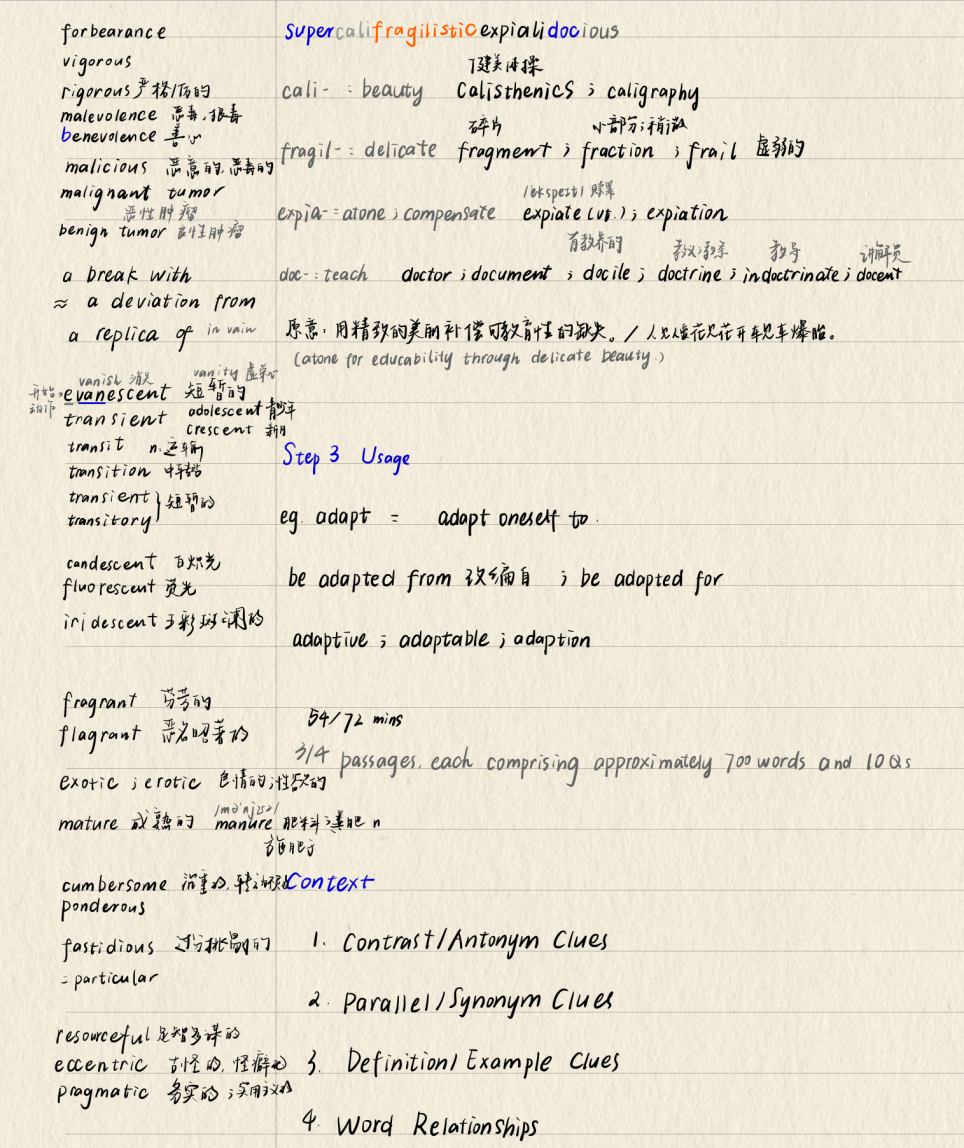 forbearance
vigorous
rigorous 严格/厉的
malevolence 恶毒,狠毒
benevolence 善心
malicious 恶意的,恶毒的
malignant tumor
恶性肿瘤
benign tumor 良性肿瘤
a break with
≈ a deviation from
a replica of in vain
vanish 消失 vanity 虚荣心
开始
动作
evanescent 短暂的
transient adolescent 青少年
crescent 新月
transit n.运输
transition
transient
transitory } 短暂的
candescent 白炽光
fluorescent 荧光
iridescent 五彩斑斓的
fragrant 芬芳的
flagrant 恶名昭著的
exotic ; erotic 色情的;性欲的
mature 成熟的 manure 肥料;粪肥 n
施肥于
cumbersome 沉重的,
ponderous
fastidious 过分挑剔的
= particular
resourceful 足智多谋的
eccentric 古怪的,怪癖的
pragmatic 务实的;实用主义的
supercalifragilisticexpialidocious
健美体操
cali- : beauty Calisthenics ; caligraphy
碎片 小部分;稍微
fragil- : delicate fragment ; fraction ; frail 虚弱的
/ekspeɪt/ 赎罪
expia- = atone ; compensate expiate (vt.) ; expiation
有教养的 教义;教条 教导 讲解员
doc- : teach doctor ; document ; docile ; doctrine ; indoctrinate ; docent
原意:用精致的美丽补偿可教育性的缺失。/ 人见人爱花见花开车见车爆胎。
(atone for educability through delicate beauty.)
Step 3 Usage
eg. adapt = adapt oneself to.
be adapted from 改编自 ; be adapted for
adaptive ; adaptable ; adaption
54/72 mins
3/4 passages, each comprising approximately 700 words and 10 Qs
Context
1. Contrast/Antonym Clues
2. Parallel/Synonym Clues
3. Definition/Example Clues
4. Word Relationships